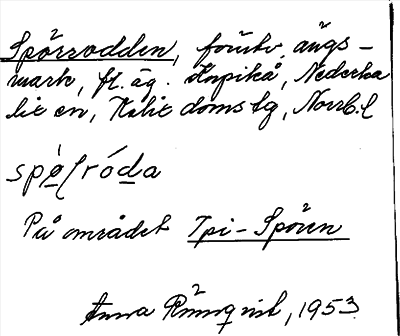 Spörrodden, förutv. ängs-
mark, fl. äg. Knpikå, Nederka
lix en, Kalix domsbg, Norrb. l
spø̀ʃróda
På området Tpi-Spören
Anna Rönnqvist, 1953